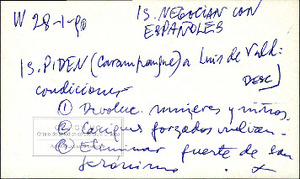 W 28-1-90
IS. NEGOCIAN CON
ESPAÑOLES
IS. PIDEN (Carampangue) a Luis de Vald:
DESC)
condiciones
① Devoluc. mujeres y niños.
② Caciques forzados vuelvan
③ Eliminar fuerte de San
Jerónimo